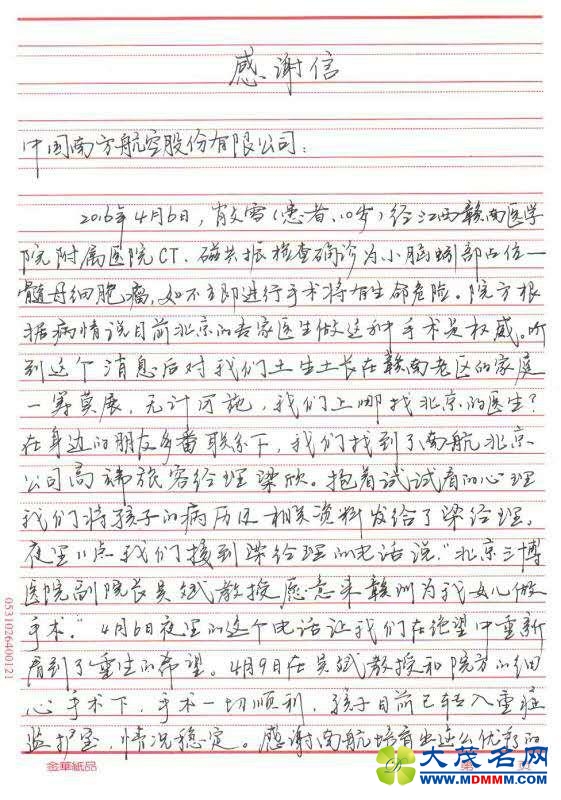 感谢信
中国南方航空股份有限公司：
2016年4月6日，肖文雪（患者、10岁）经江西赣南医学
院附属医院CT、磁共振检查确诊为小脑蚓部占位—
髓母细胞瘤，如不立即进行手术将有生命危险。院方根
据病情说目前北京的专家医生做这种手术是权威。听
到这个消息后对我们土生土长在赣南老区的家庭
一筹莫展，无计可施，我们上哪找北京的医生？
在身边的朋友多番联系下，我们找到了南航北京
公司高端旅客经理梁欣。抱着试试看的心理
我们将孩子的病历及相关资料发给了梁经理。
夜里11点我们接到梁经理的电话说，“北京三博
医院副院长吴斌教授愿意来赣州为我女儿做
手术。”4月6日夜里的这个电话让我们在绝望中重新
看到了重生的希望。4月9日在吴斌教授和院方的细
心手术下，手术一切顺利，孩子目前已转入重症
监护室，情况稳定。感谢南航培育出这么优秀的
0531026400121
金華紙品
第 页
大茂名网
www.MDMMM.com